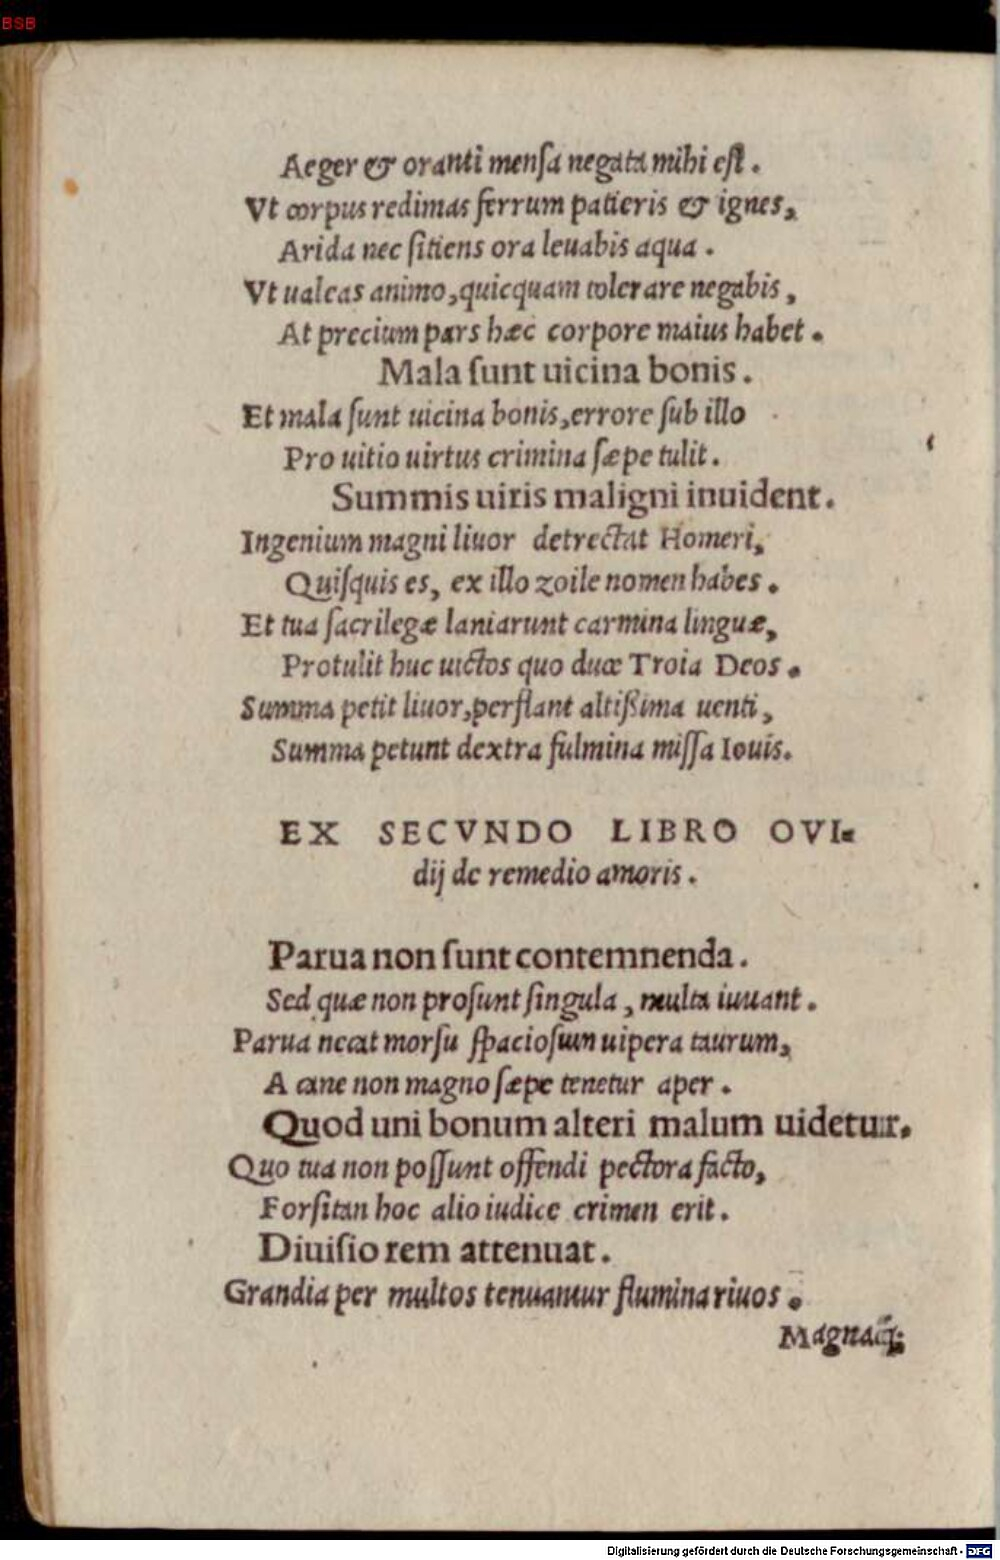 BSB
Aeger & oranti mensa negata mihi est.
Vt corpus redimas ferrum patieris & ignes,
Arida nec sitiens ora leuabis aqua.
Vt ualeas animo, quicquam tolerare negabis,
At precium pars hæc corpore maius habet.
Mala sunt uicina bonis.
Et mala sunt uicina bonis, errore sub illo
Pro uitio uirtus crimina sæpe tulit.
Summis uiris maligni inuident.
Ingenium magni liuor detrectat Homeri,
Quisquis es, ex illo zoile nomen habes.
Et tua sacrilegæ laniarunt carmina linguæ,
Protulit huc uictos quo duce Troia Deos.
Summa petit liuor, perflant altißima uenti,
Summa petunt dextra fulmina missa Iouis.
EX SECVNDO LIBRO OVI-
dij de remedio amoris.
Parua non sunt contemnenda.
Sed quæ non prosunt singula, multa iuuant.
Parua necat morsu spaciosum uipera taurum,
A cane non magno sæpe tenetur aper.
Quod uni bonum alteri malum uidetur.
Quo tua non possunt offendi pectora facto,
Forsitan hoc alio iudice crimen erit.
Diuisio rem attenuat.
Grandia per multos tenuantur flumina riuos.
Magnaq́;
Digitalisierung gefördert durch die Deutsche Forschungsgemeinschaft - DFG